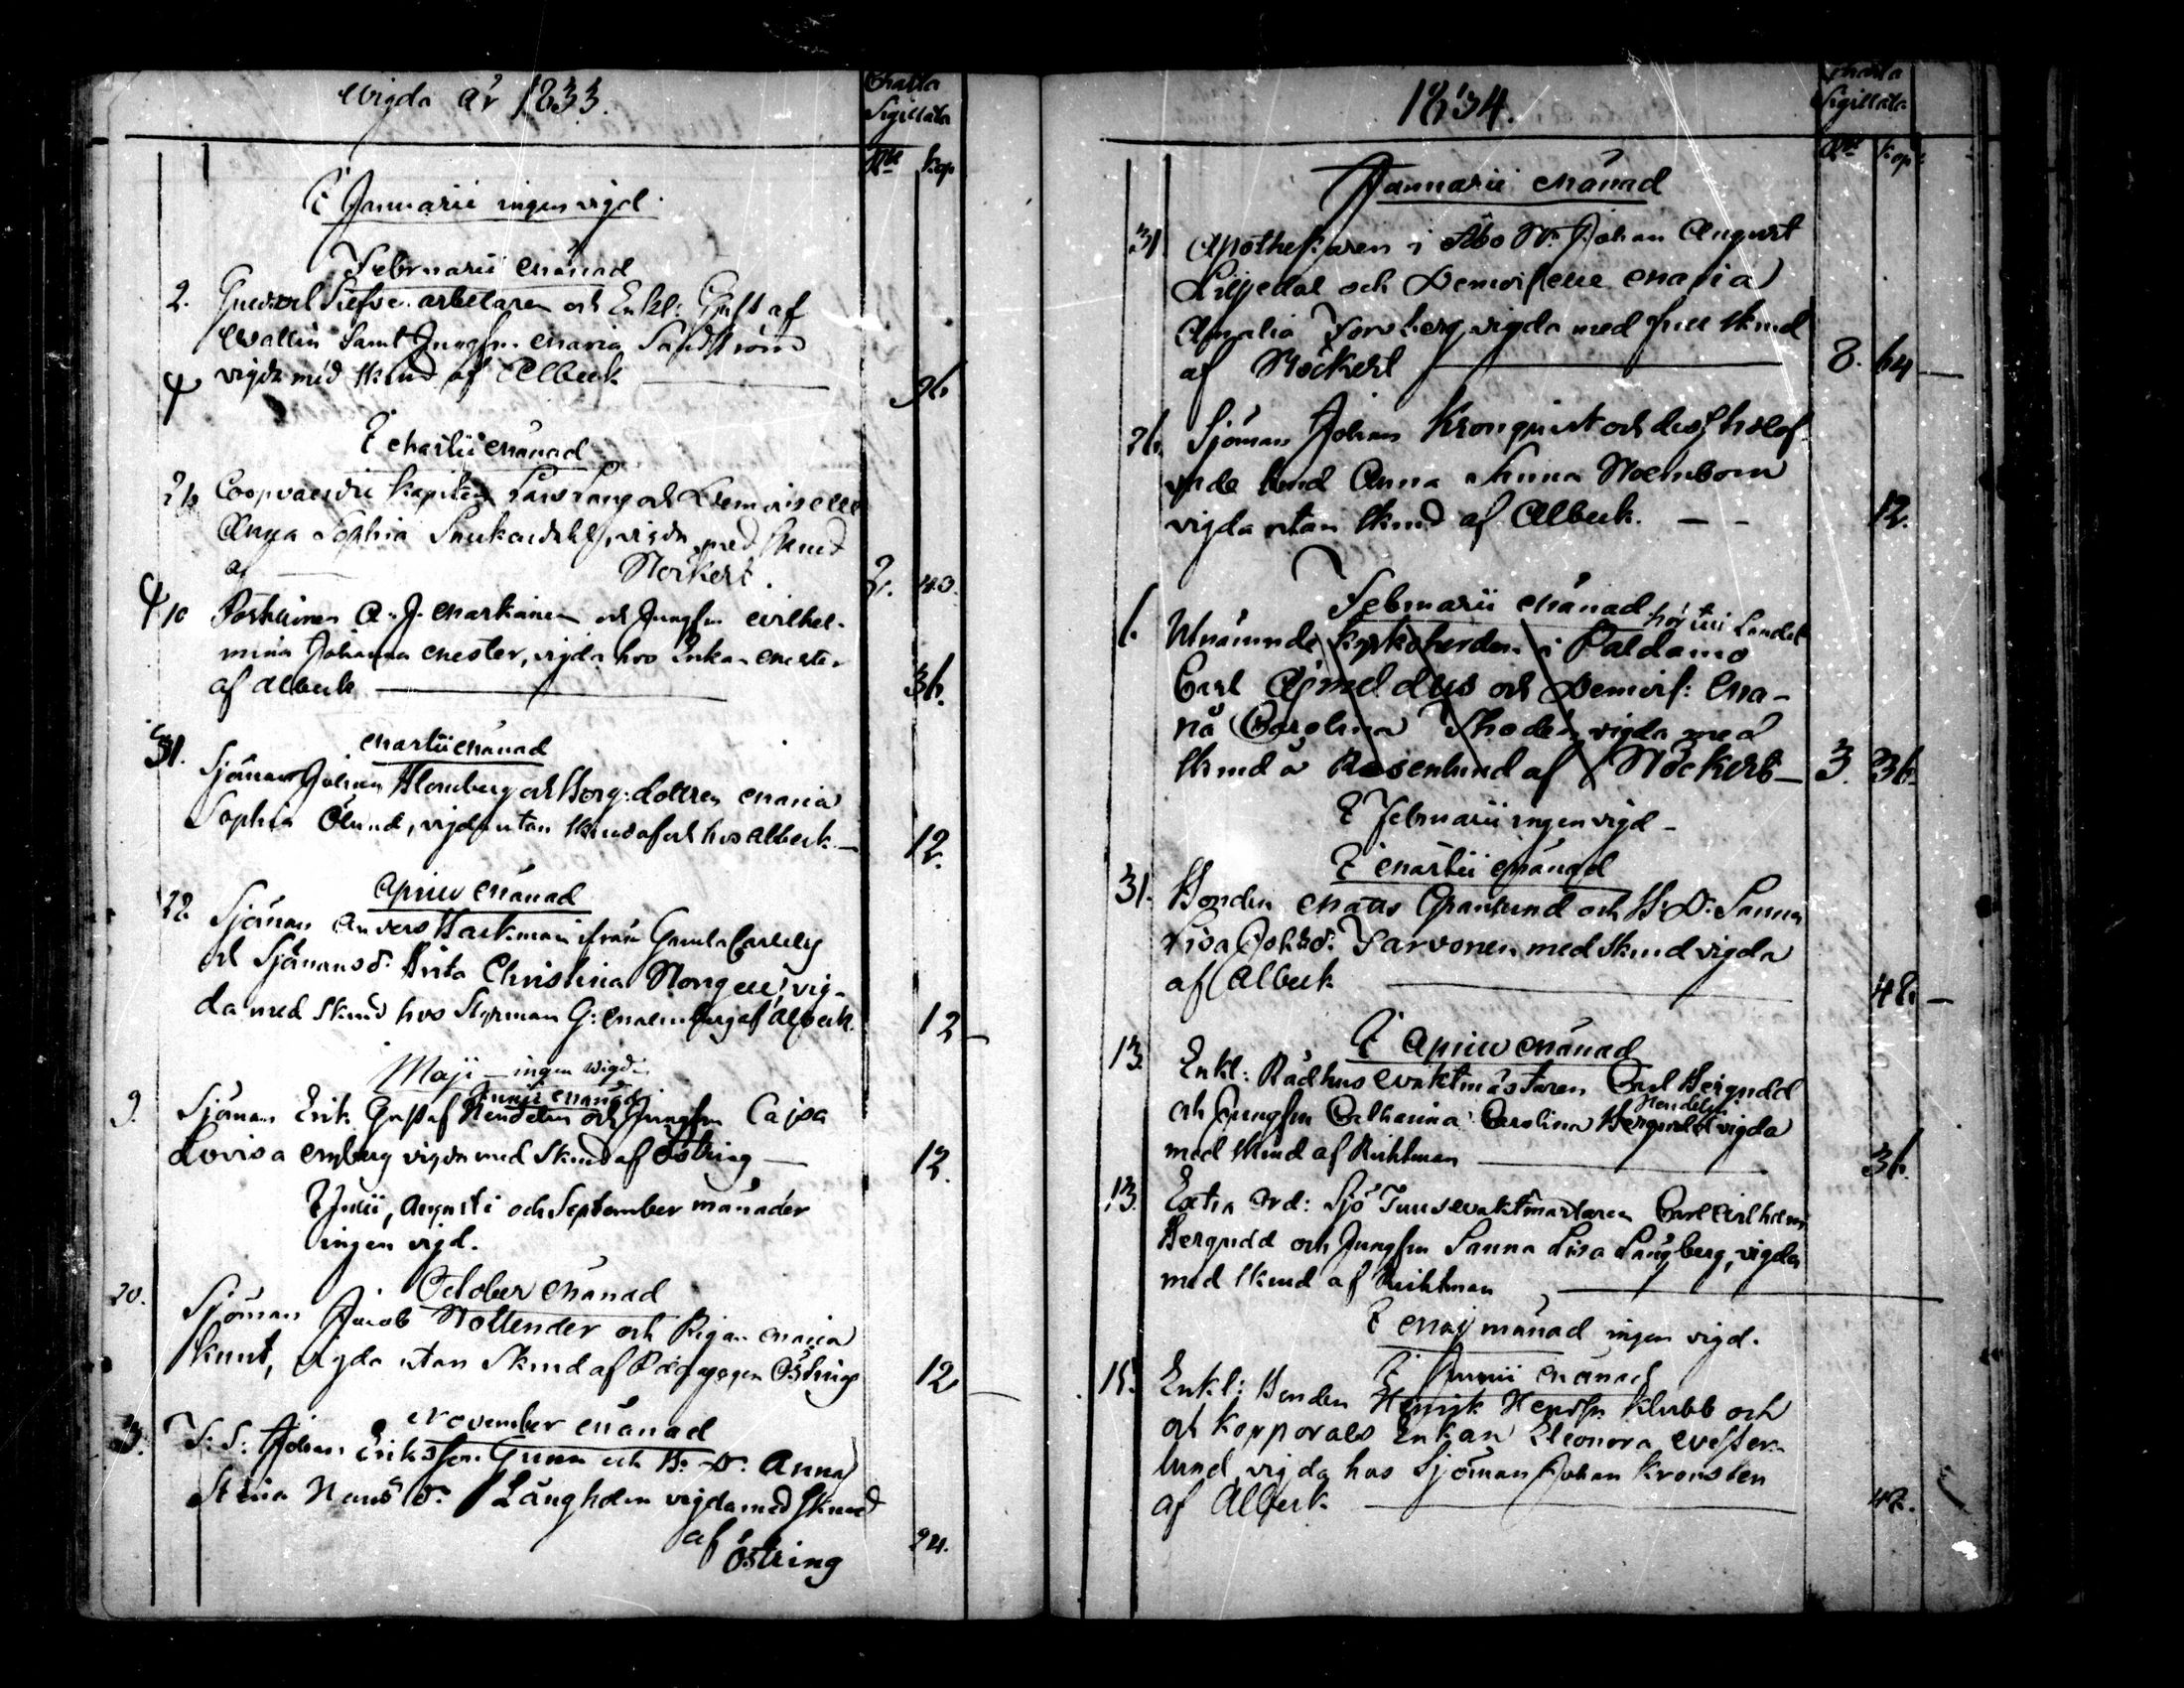 Wigda år 1833.
Charta
Sigillata
Rbl Kop
I Januarii ingen vigd.
Februarii Månad
2. arbetaren och Enkl: Gust af
Wallin samt Jungfru Maria Sandström
vigda med skrud af Albeck — 36
I Martii Månad
26 Coopvaerdie Kapiten Lars Lang och Demoiselle
Anna Sophia vigda med skrud
af — Stockert. 2. 40.
10 A. J. Markanen och Jungfru Wilhel-
mina Johanna Mester, vigda hos Enkan Mester
af Albeck — 36.
Martii Månad
31. Sjöman Johan Blomberg och Borg: dottren Maria
Sophia Ölund, vigda utan skrud af och hos Albeck — 12.
Aprill Månad
22. Sjöman Anders Backman ifrån Gamla Carleby
och Sjömansd: Brita Christina Norgell, vig-
da med skrud hos Styrman G: Malmberg af Albeck. 12 —
Maji — ingen wigd.
Junii Månad
9. Sjöman Erik Gustaf Hendelin och Jungfru Cajsa
Lovisa Myberg vigda med skrud af Östring — 12.
I Julii, Augusti och September månader
ingen vigd.
October Månad
20. Sjöman Jacob Hollender och Pigan Maria
Knut, vigda utan skrud af Pædagogen Östring 12 —
November Månad
S: S: Johan Eriksson Gunn och B: D: Anna
Stina Hans d: Långholm vigda med skrud
af Östring 24.
1834.
Charta
Sigillata
Rbl Kop
Januarii Månad
31. Apothekaren i Åbo Hr. Johan August
Liljedal och Demoiselle Maria
Amalia Forsberg, vigda med full skrud
af Stockert — 8. 64 —
26. Sjöman Johan Kronqvist och dess trolof-
vade brud Anna Stina Holmbom
vigda utan skrud af Albeck. — — 12.
Februarii Månad
hör till Landet
1. Utnämnde Kyrkoherden i Paldamo
Carl och Demois: Ma-
ria Carolina vigda med
skrud å Rosenlund af Stockert — 3. 36
I Februarii ingen vigd —
I Martii Månad
31. Bonden Mats Granlund och B: D: Sanna
Lisa Johsd: Sarvonen med skrud vigda
af Albeck — 48 —
I Aprill Månad
13. Enkl: Rådhus Waktmästaren Carl Bergudd
och Jungfru Catharina Carolina Hendelin vigda
med skrud af Richtman — 36.
13. Extra Ord: Sjö Tulls Waktmästaren Carl Wilhelm
Bergudd och Jungfru Sanna Lisa Långberg, vigda
med skrud af Richtman —
I Maj månad ingen vigd.
I Junii Månad
15. Enkl: Bonden Henrik Hendrs: Klubb och
och Korporals Enkan Eleonora Wester-
lund, vigda hos Sjöman Johan Kronsten
af Albeck — 42.